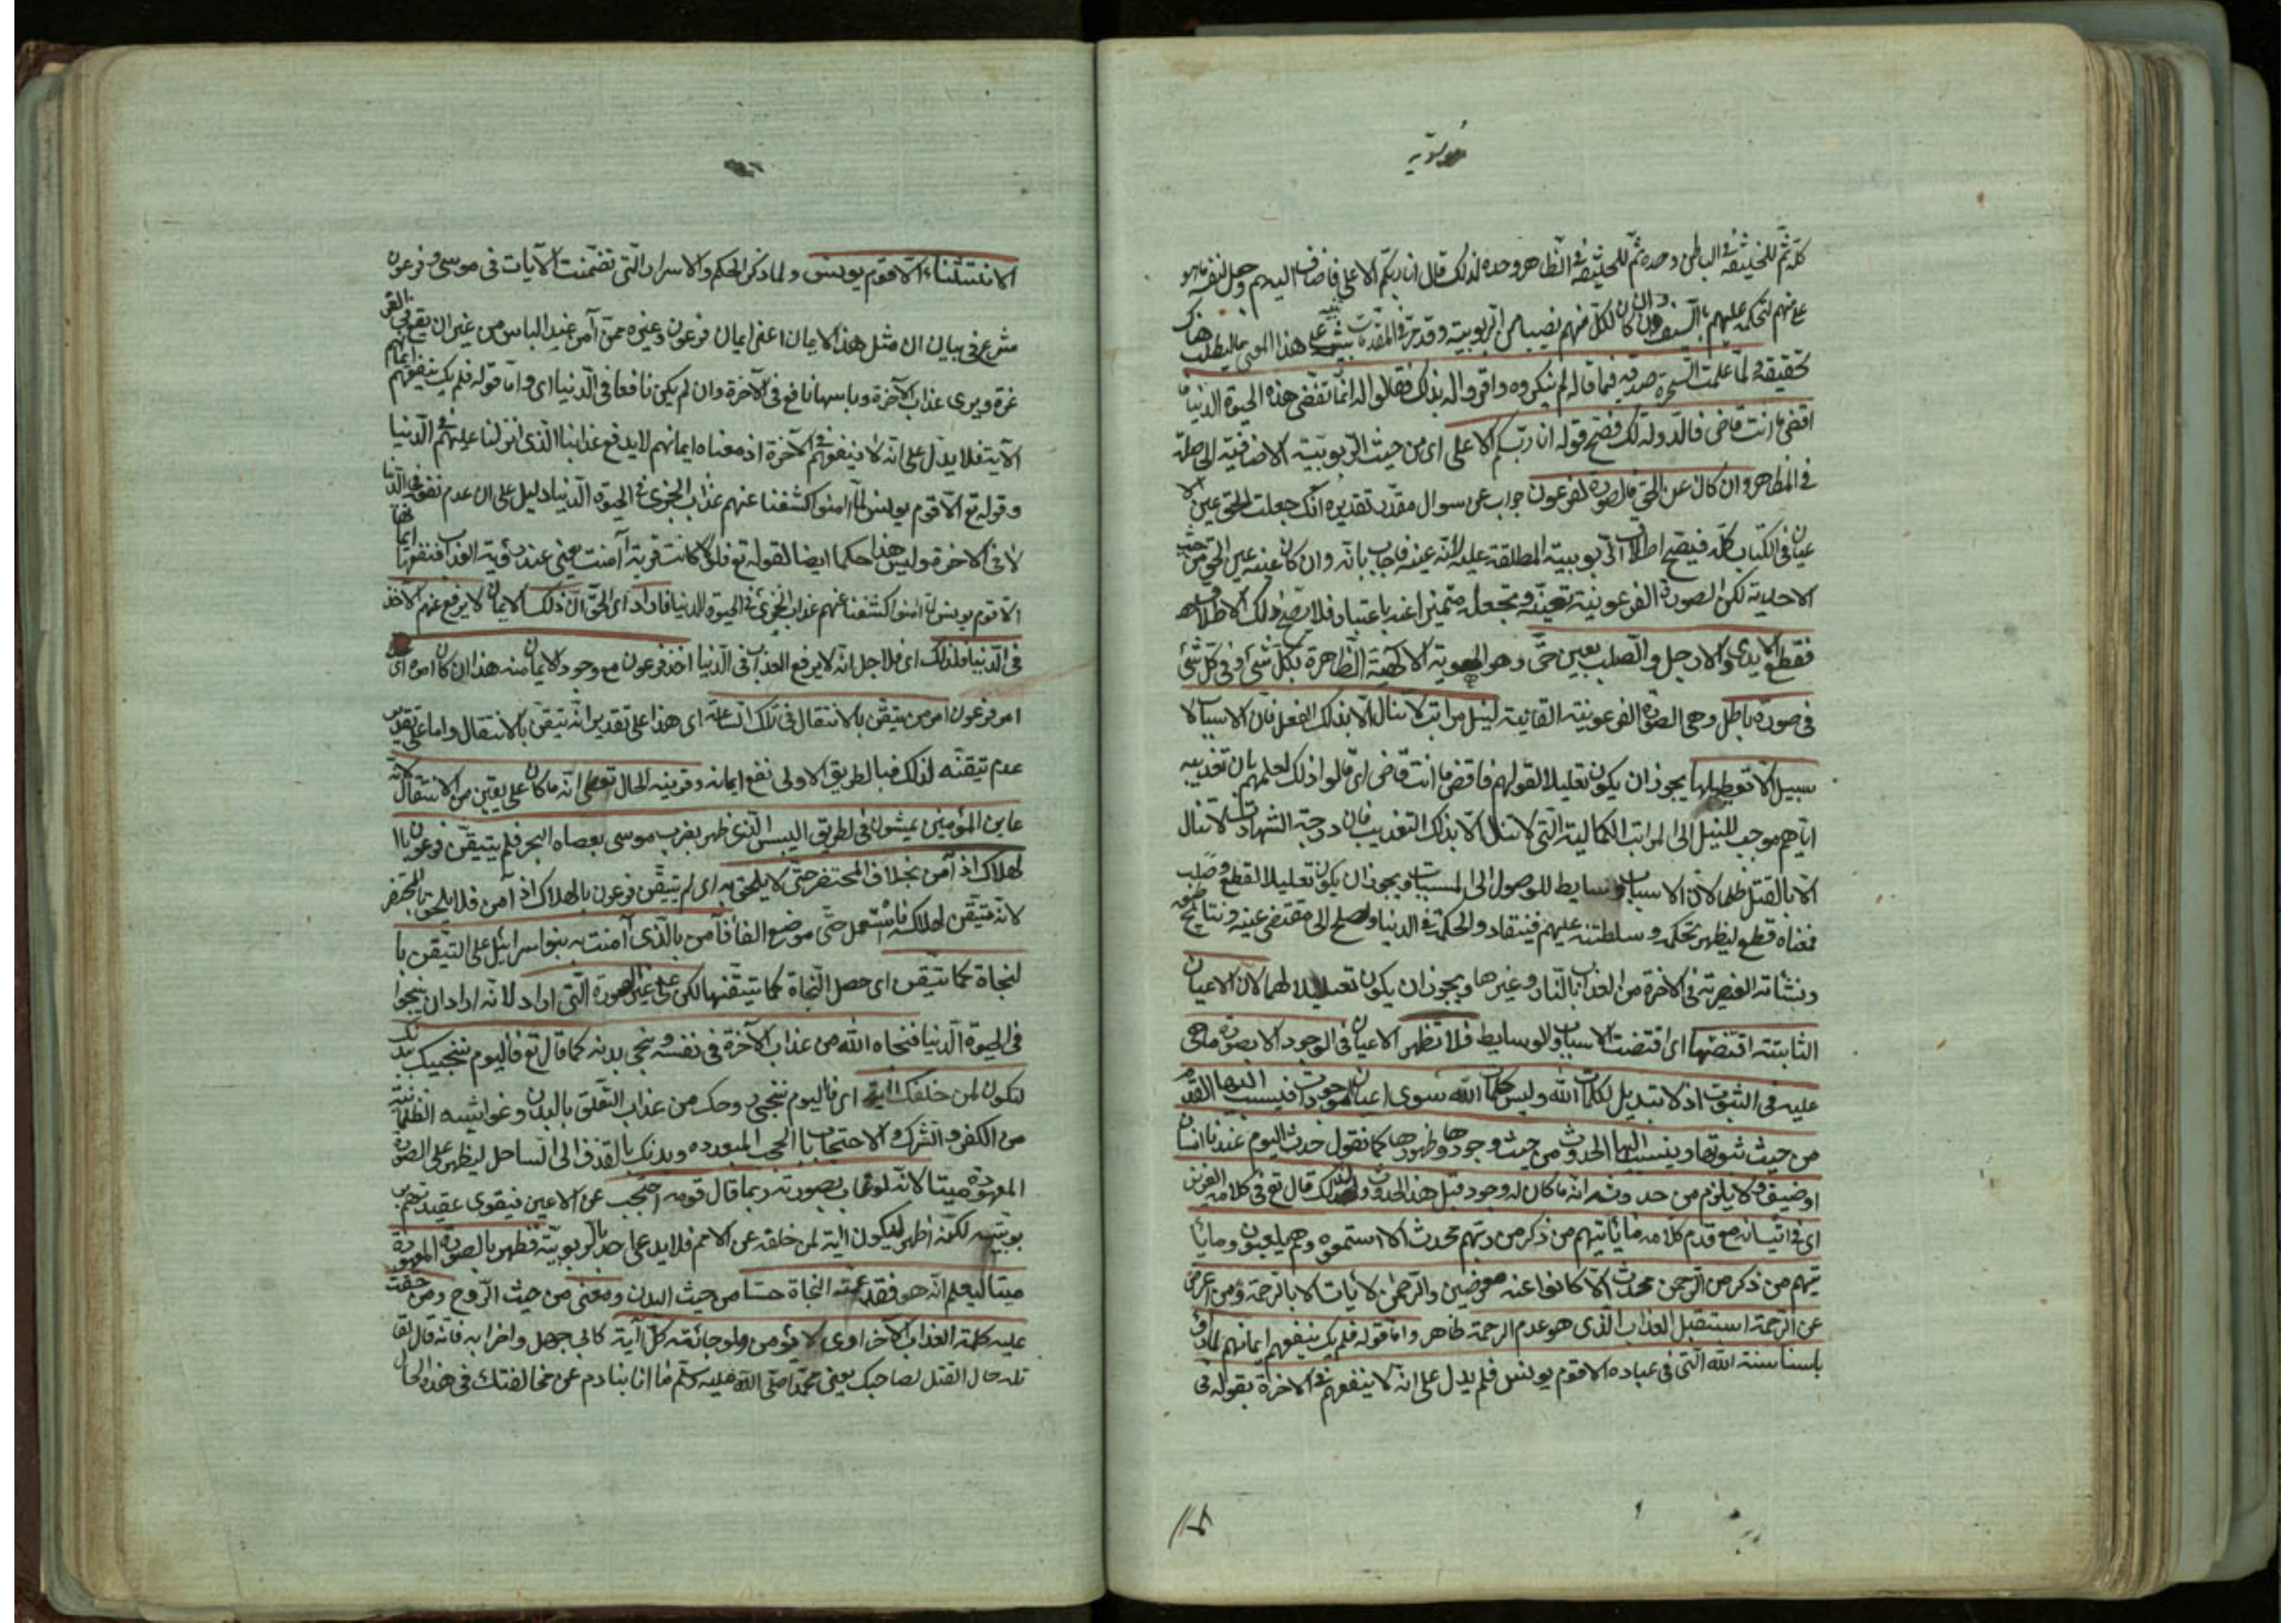 موسوية
كله ثم للخليفة في الباطن وحده ثم للخليفة في الظاهر وحده لذلك قال انا ربكم الاعلى فاضاف اليهم وجعل لنفسه ما هو
على منهم لتحكمه عليهم بالسيف وان كان لكل منهم نصيبا من الربوبية وقد مر في المقدمات تنبيه على هذا المعنى فاليطلب هناك
تحقيقه ولما علمت السحرة صدقه فيما قاله لم ينكروه واقروا له بذلك فقالوا له انما تقضى هذه الحيوة الدنيا
اقض ما انت قاض فالدولة لك فصح قوله انا ربكم الاعلى اى من حيث الربوبية الاضافية الحاصلة
في المظاهر وان كان عين الحق فالصورة لفرعون جواب عن سوال مقدر تقديره انك جعلت الحق عين الا
عيان في الكتاب كله فيصح اطلاق الربوبية المطلقة عليه لانه عينه فاجاب بانه وان كان عينه عين الحق من حيث
الاحدية لكن الصورة الفرعونية تعينه وتجعله متميزا عنه باعتبار فلا يصح ذلك الاطلاق
فقطع الايدى والارجل والصلب بعين حق وهو الهوية الالهية الظاهرة بكل شئ او في كل شئ
في صورة باطل وهى الصورة الفرعونية الفانية لنيل مراتب لا تنال الا بذلك الفعل فان الاسباب لا
سبيل الا تعطيلها يجوز ان يكون تعليلا لقولهم فاقض ما انت قاض اى قالوا ذلك لعلمهم بان تعذيبه
اياهم موجب للنيل الى المراتب الكمالية التى لا تنال الا بذلك التعذيب فان درجة الشهادت لا تنال
الا بالقتل ظلما لان الاسباب وسايط للوصول الى المسببات ويجوز ان يكون تعليلا لقطع وصلب
فمعناه قطع ليظهر تحكمه وسلطنته عليهم فينقاد والحكمة في الدنيا وليصلح الى مقتضى عينه ونتايج
ونشاته العنصرية في الاخرة من العذاب بالنار وغيرها ويجوز ان يكون تعليلا لهما لان الاعيان
الثابتة اقتضتها اى اقتضت الاسباب والوسايط فلا تظهر الاعيان في الوجود الا بصورة ما هى
عليه في الثبوت اذ لا تبديل لكلمات الله وليس كلمات الله سوى اعيان الموجودات فينسب اليها القدم
من حيث ثبوتها وينسب اليها الحدوث من حيث وجودها وظهورها كما تقول حدث اليوم عندنا انسان
او ضيف ولا يلزم من حدوثه انه ما كان له وجود قبل هذا الحدوث ولذلك قال تع في كلامه العزيز
اى في اتيانه مع قدم كلامه ما ياتيهم من ذكر من ربهم محدث الا استمعوه وهم يلعبون وما يا
تيهم من ذكر من الرحمن محدث الا كانوا عنه معرضين والرحمن لا يات الا بالرحمة ومن اعرض
عن الرحمة استقبل العذاب الذى هو عدم الرحمة ظاهر واما قوله فلم يك ينفعهم ايمانهم لما راو
باسنا سنة الله التى في عباده الا قوم يونس فلم يدل على انه لا ينفعهم في الاخرة بقوله في
الاستثناء الا قوم يونس ولما ذكر الحكم والاسرار التى تضمنت الآيات في موسى وفرعون
شرع في بيان ان مثل هذا الايمان اعنى ايمان فرعون وغيره ممن آمن عند الباس من غير ان يقع في الغر
غرة ويرى عذاب الآخرة وباسها نافع في الآخرة وان لم يكن نافعا في الدنيا اى واما قوله فلم يك ينفعهم ايمانهم
الآية فلا يدل على انه لا ينفعهم في الآخرة اذ معناه ايمانهم لا يدفع عذابنا الذى انزلنا عليهم في الدنيا
وقوله تع الا قوم يونس لما آمنوا كشفنا عنهم عذاب الخزى في الحيوة الدنيا دليل على ان عدم نفعه في الدنيا
لا في الاخرة وليس هذا حكما ايضا لقوله تع فلولا كانت قرية آمنت يعنى عند رؤية العذاب فنفعها ايمانها
الا قوم يونس لما امنوا كشفنا عنهم عذاب الخزى في الحيوة الدنيا فاراد اى الحق ان ذلك الايمان لا يرفع عنهم الاخذ
في الدنيا فلذلك اى فلاجل انه لا يرفع العذاب في الدنيا اخذ فرعون مع وجود الايمان منه هذا ان كان امره اى
امر فرعون امر من تيقن بالانتقال في تلك الساعة اى هذا على تقدير انه تيقن بالانتقال واما على تقدير
عدم تيقنه لذلك فبالطريق الاولى نفع ايمانه وقرينة الحال تعطى انه ما كان على يقين من الانتقال لانه
عاين المؤمنين يمشون في الطريق اليبس الذى ظهر بضرب موسى بعصاه البحر فلم يتيقن فرعون با
لهلاك اذ آمن بخلاف المحتضر حتى لا يلحق به اى لم يتيقن فرعون بالهلاك اذ آمن فلا يلحق بالمحتضر
لانه متيقن لهلاكه فاستعمل حتى موضع الفا فآمن بالذى آمنت به بنوا اسرائيل على التيقن با
لنجاة كما تيقن اى حصل النجاة كما تيقنها لكن على غير الصورة التى اراد لانه اراد ان ينجوا
في الحيوة الدنيا فنجاه الله من عذاب الآخرة في نفسه ونجى بدنه كما قال تع فاليوم ننجيك ببدنك
لتكون لمن خلفك آية اى فاليوم ننجى روحك من عذاب التعلق بالبدن وغواشيه الظلمانية
من الكفر والشرك والاحتجاب بالحجب المبعده وبدنك بالقذف الى الساحل ليظهر على الصورة
المعهودة ميتا لانه لو غاب بصورته ربما قال قومه احتجب عن الاعين فيقوى عقيدتهم بر
بوبيته لكنه اظهر ليكون آية لمن خلفه عن الامم فلا يدعى احد بالربوبية فظهر بالصورة المعهودة
ميتا ليعلم انه هو فقد عمته النجاة حسا من حيث البدن ومعنى من حيث الروح ومن حقت
عليه كلمة العذاب الاخراوى لا يؤمن ولو جائته كل آية كابى جهل واضرابه فانه قال لقا
تله حال القتل لصاحبك يعنى محمدا صلى الله عليه وسلم ما انا بنادم عن مخالفتك في هذا الحال